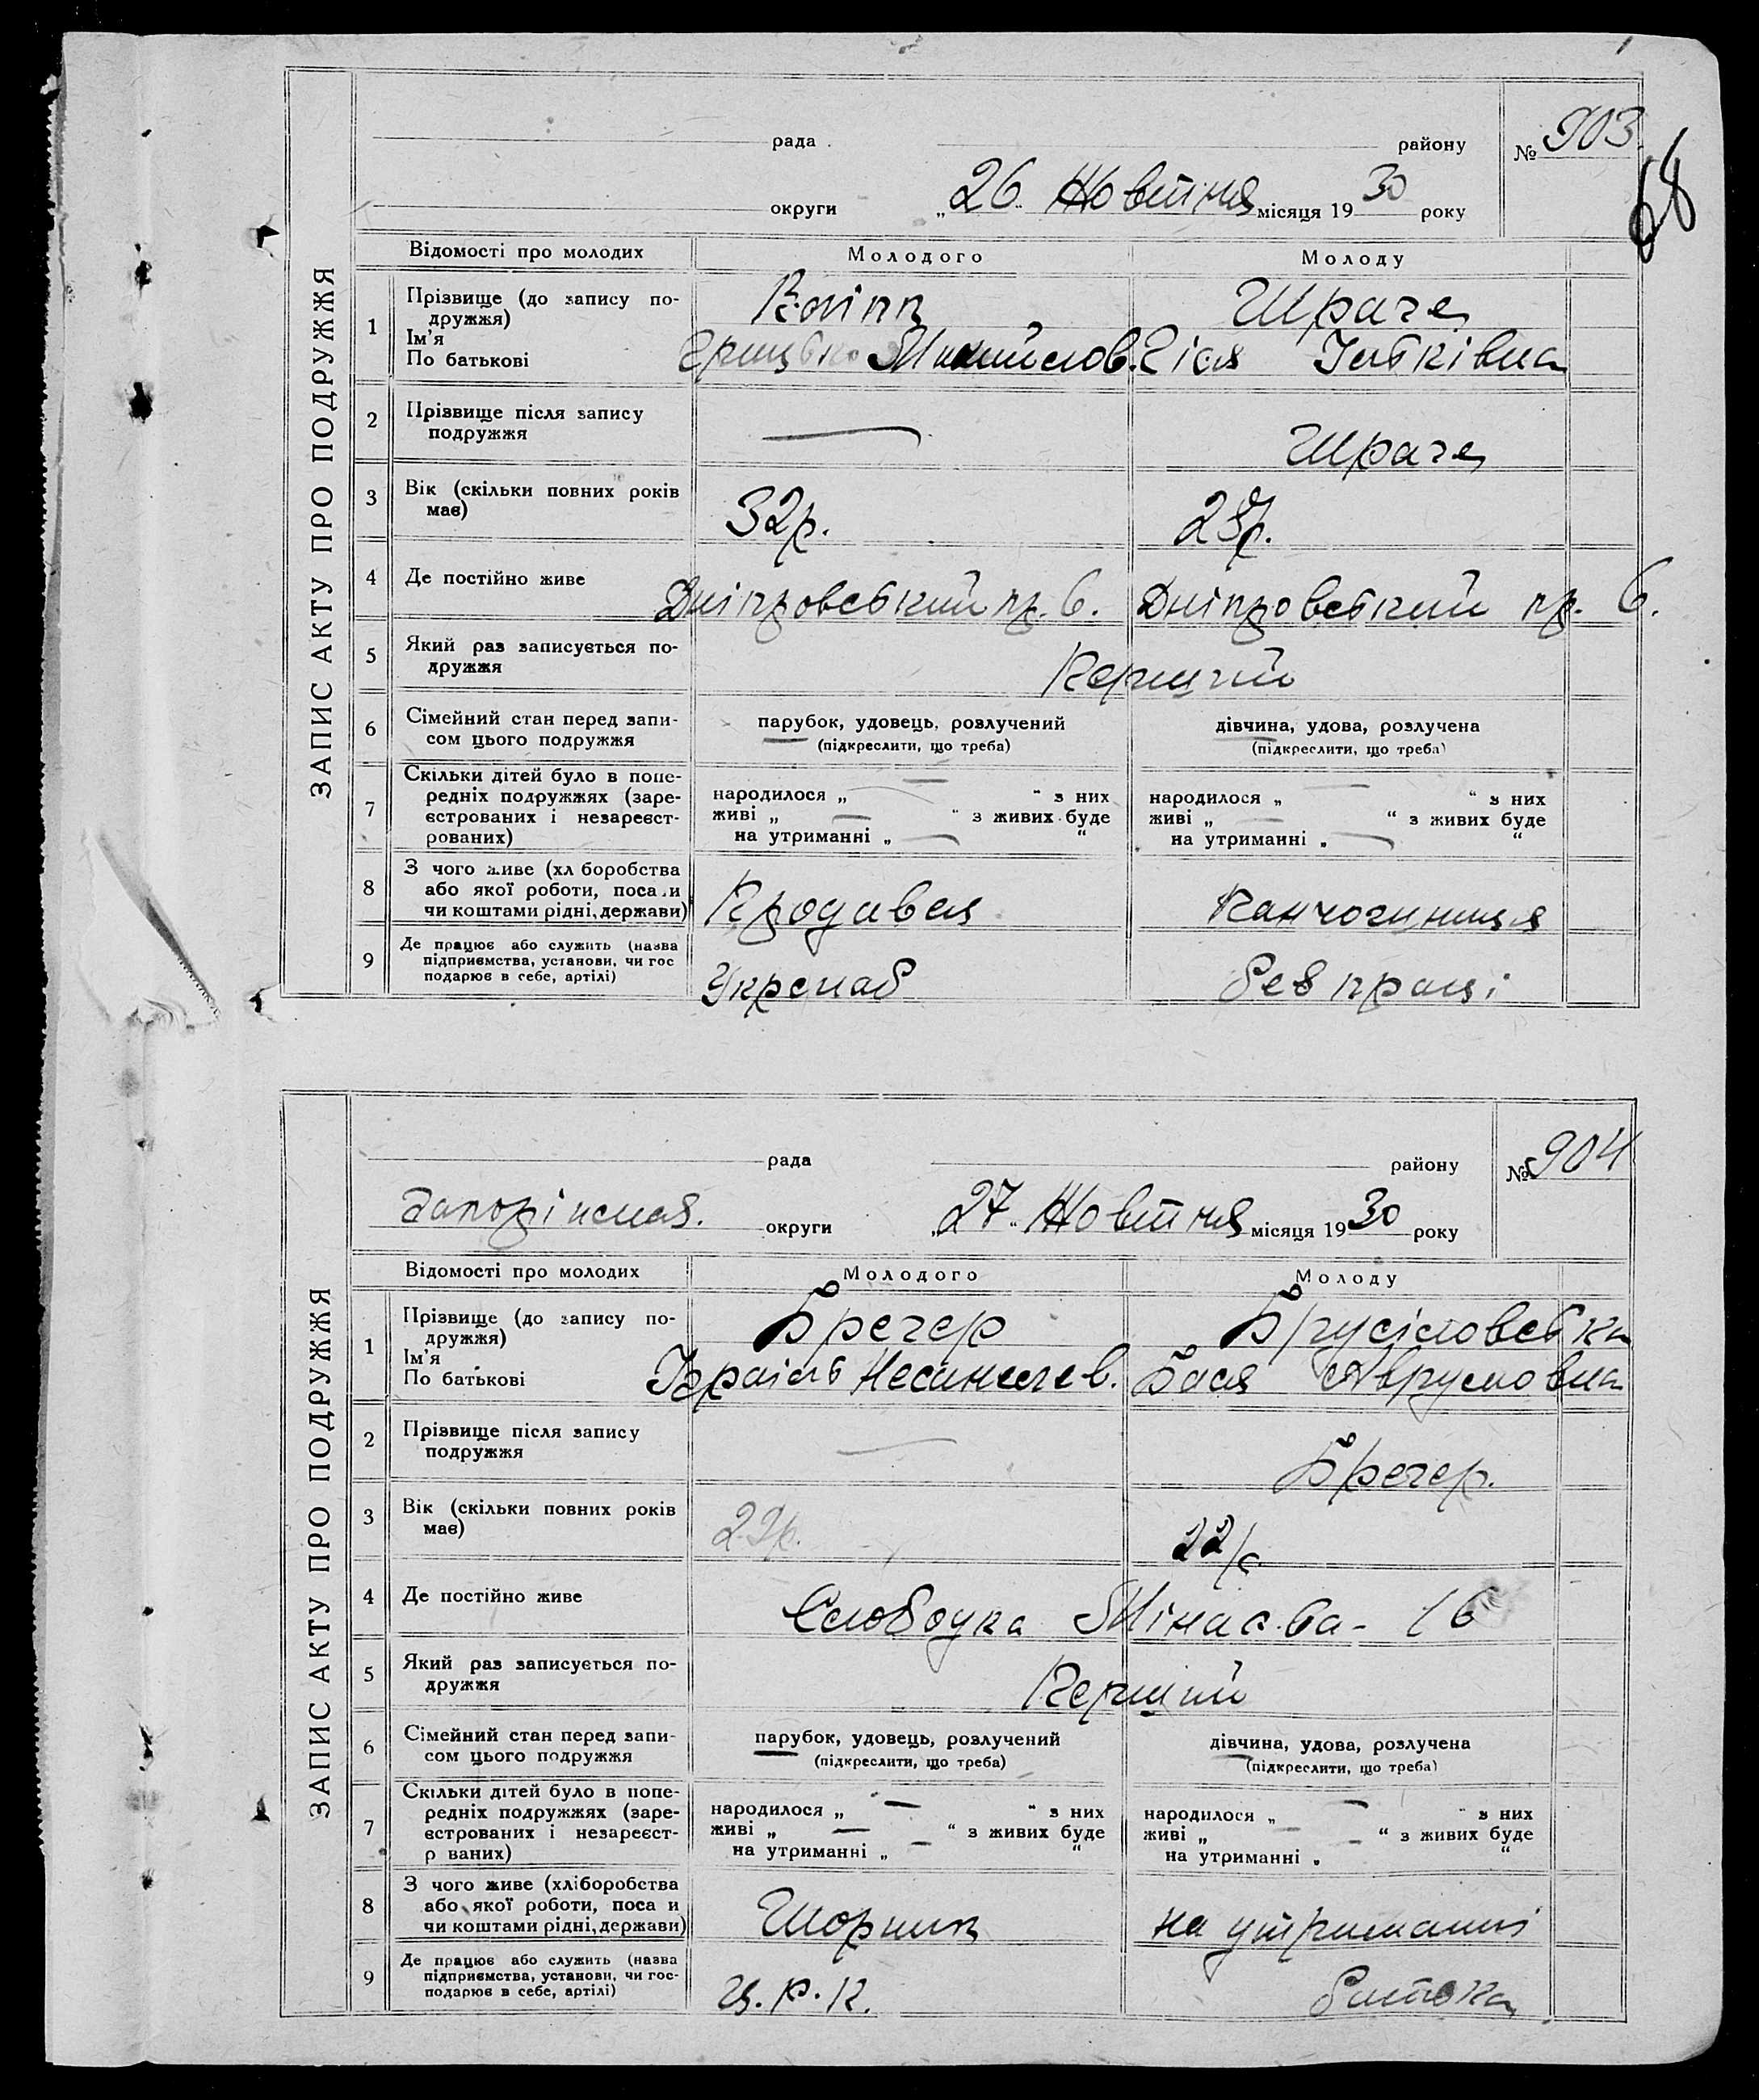 ЗАПИС АКТУ ПРО ПОДРУЖЖЯ
рада
району
№ 903
68
округи
„26" Жовтня місяця 1930 року
Відомості про молодих
Молодого
Молоду
1
Прізвище (до запису подружжя)
Ім'я
По батькові
Шраге
Грицько Михайлов.
Гіся Іцьківна
2
Прізвище після запису подружжя
—
Шраге
3
Вік (скільки повних років має)
32р.
4
Де постійно живе
Дніпровський пр. 6.
Дніпровський пр. 6.
5
Який раз записується подружжя
Перший
6
Сімейний стан перед записом цього подружжя
парубок, удовець, розлучений
(підкреслити, що треба)
дівчина, удова, розлучена
(підкреслити, що треба)
7
Скільки дітей було в попередніх подружжях (зареєстрованих і незареєстрованих)
народилося „ — " з них
живі „ — " з живих буде
на утриманні „ — "
народилося „ — " з них
живі „ — " з живих буде
на утриманні „ — "
8
З чого живе (хл боробства або якої роботи, посади чи коштами рідні, держави)
Продавец
Панчошниця
9
Де працює або служить (назва підприємства, установи, чи гос подарює в себе, артілі)
Укрснаб
без праці
ЗАПИС АКТУ ПРО ПОДРУЖЖЯ
рада
району
№ 904
округи
„27" Жовтня місяця 1930 року
Відомості про молодих
Молодого
Молоду
1
Прізвище (до запису подружжя)
Ім'я
По батькові
Брегер
Брусіловська
Ізраїль
Бася Аврумовна
2
Прізвище після запису подружжя
—
Брегер.
3
Вік (скільки повних років має)
22р.
4
Де постійно живе
Слободка
16
5
Який раз записується подружжя
Перший
6
Сімейний стан перед записом цього подружжя
парубок, удовець, розлучений
(підкреслити, що треба)
дівчина, удова, розлучена
(підкреслити, що треба)
7
Скільки дітей було в попередніх подружжях (зареєстрованих і незареєстр ваних)
народилося „ — " з них
живі „ — " з живих буде
на утриманні „ — "
народилося „ — " з них
живі „ — " з живих буде
на утриманні „ — "
8
З чого живе (хліборобства або якої роботи, поса и чи коштами рідні, держави)
Шорник
на утриманні
9
Де працює або служить (назва підприємства, установи, чи господарює в себе, артілі)
Ц.Р.К.
батька